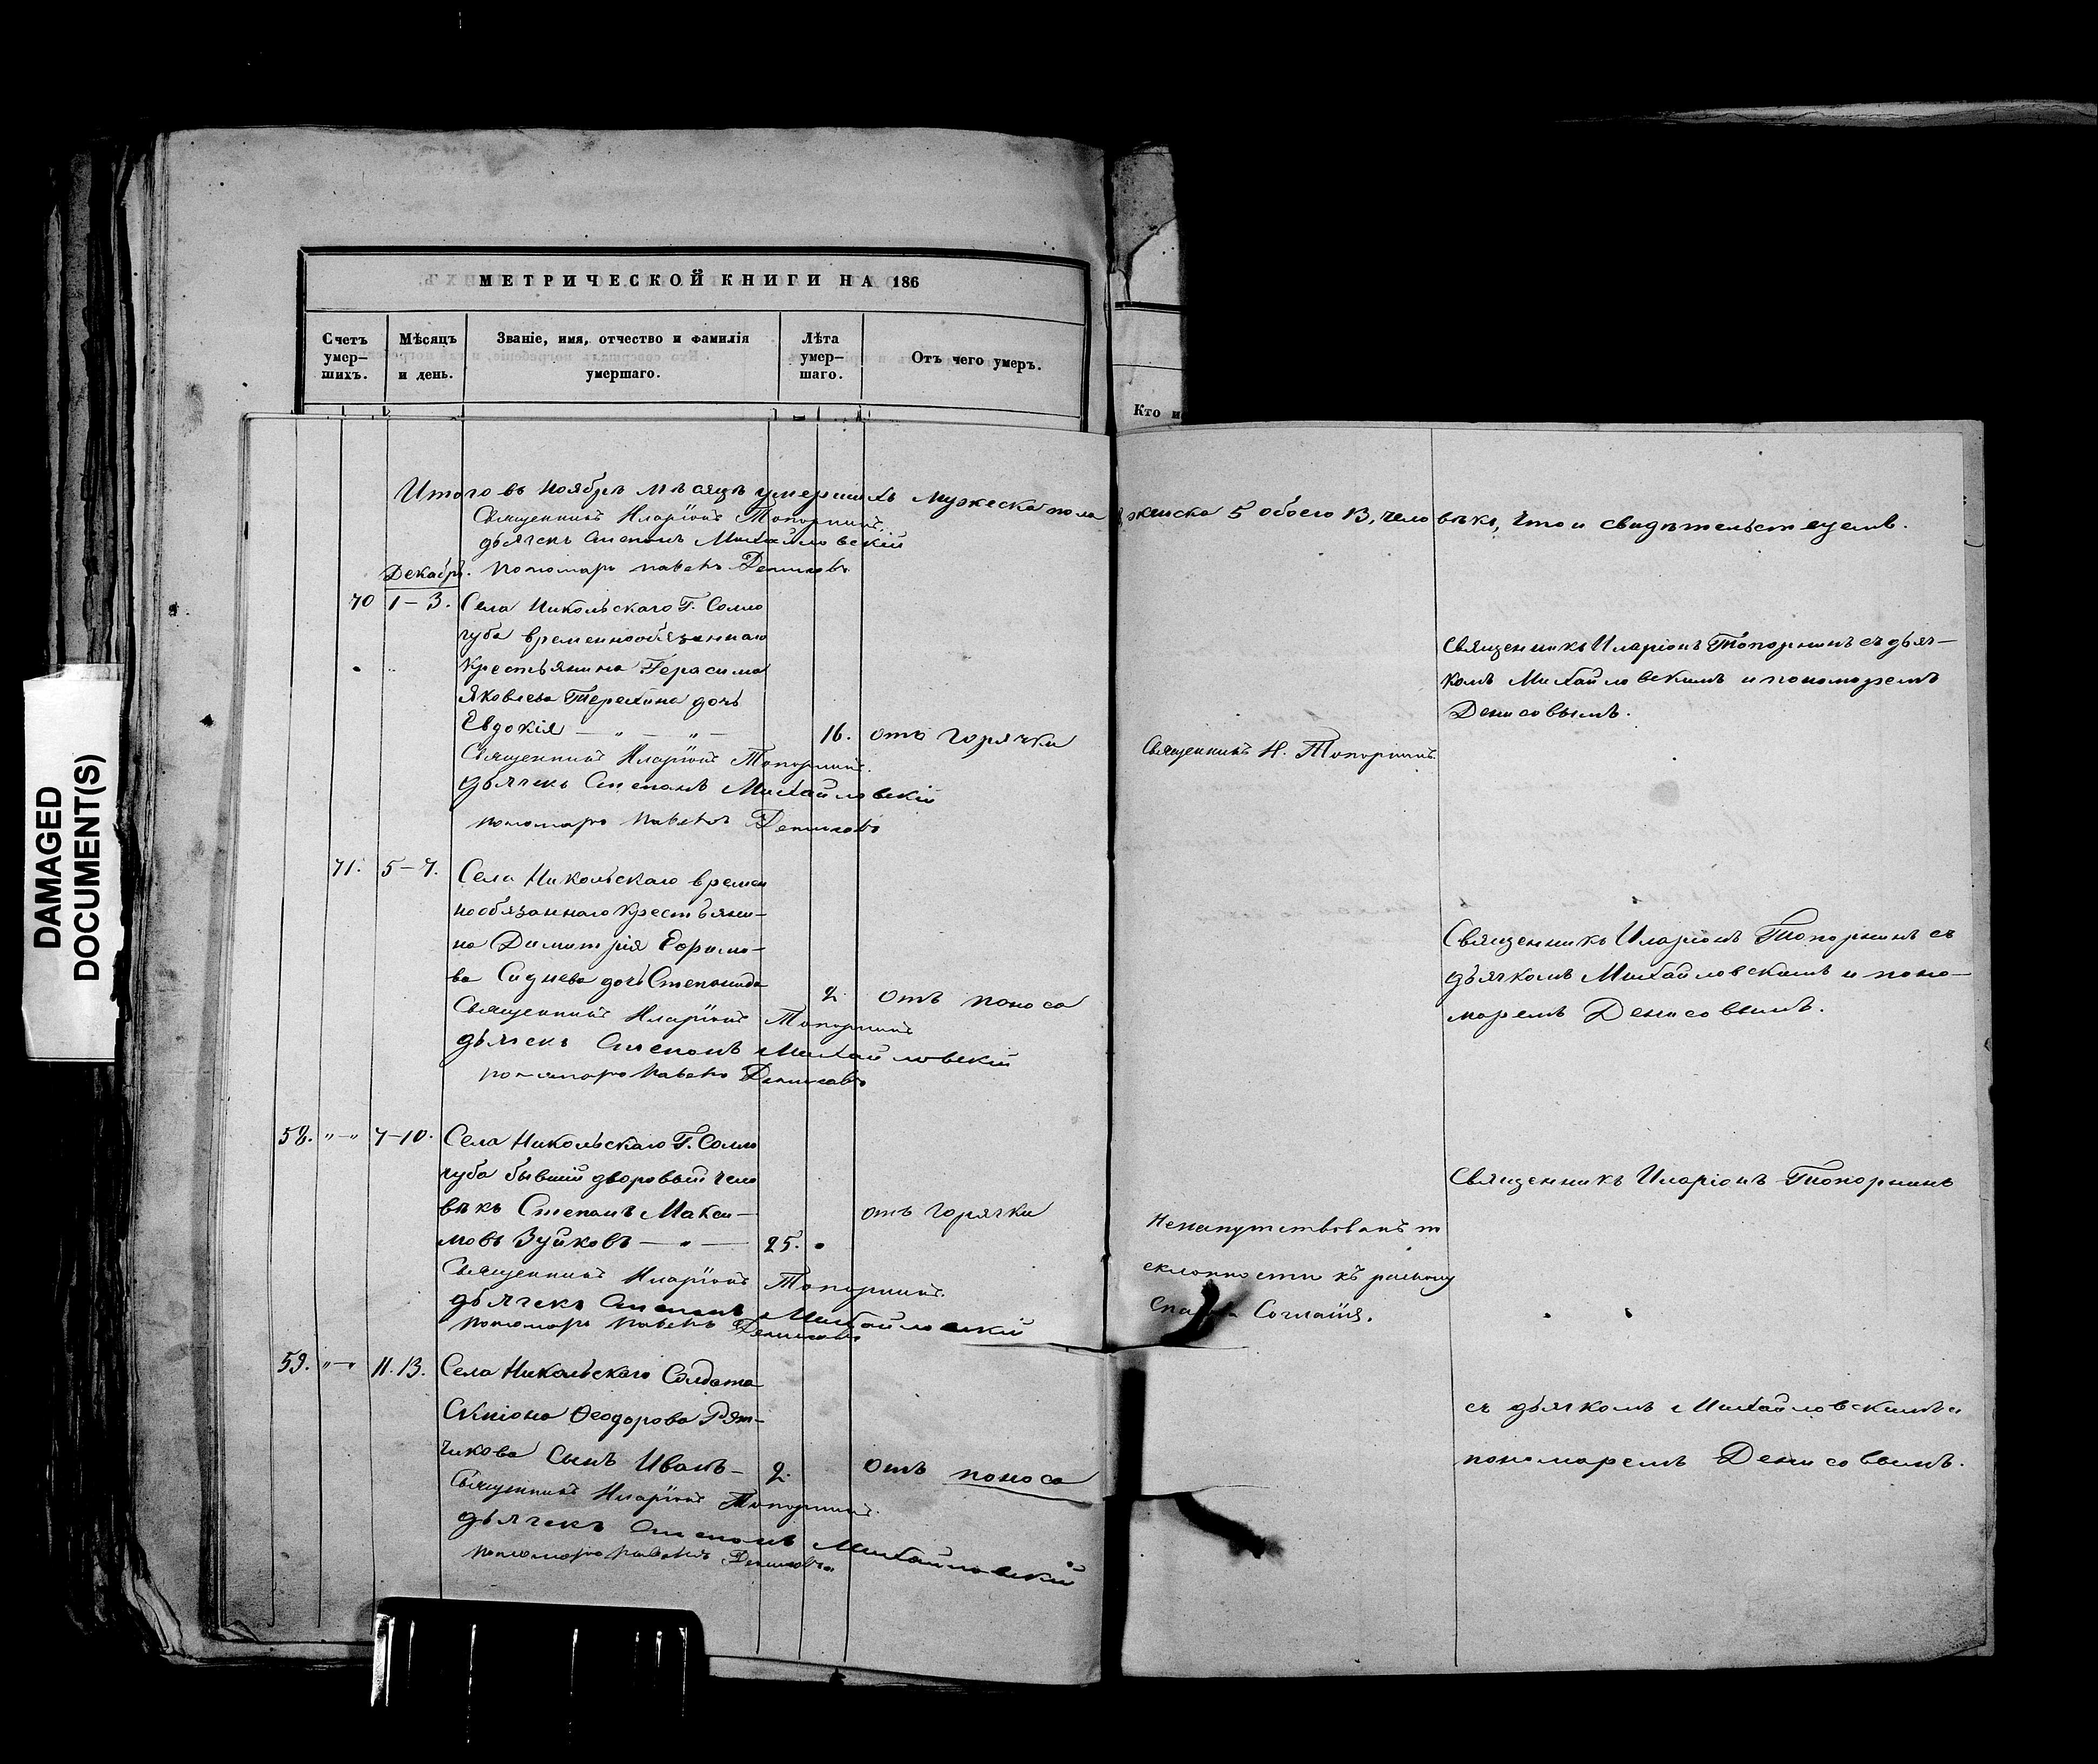 DAMAGED
DOCUMENT(S)
МЕТРИЧЕСКОЙ КНИГИ НА 186
Счетъ умер-шихъ.
Мѣсяцъ и день.
Званіе, имя, отчество и фамилія умершаго.
Лѣта умер-шаго.
Отъ чего умеръ.
Кто и
Итого въ Ноябрѣ мѣсяцѣ умершихъ мужеска пола 8, женска 5 обоего 13, человѣкъ, что и свидѣтельствуемъ.
Священникъ Иларіонъ Топорнинъ.
дьячекъ Степанъ Михайловскій
пономарь Павелъ Денисовъ
Декабрь.
70 1-3. Села Никольскаго Г. Солло
губа временнообязаннаго
Крестьянина Герасима
Яковлева Терехина дочь
Евдокія — „ — „ — 16. отъ горячки
Священникъ Иларіонъ Топорнинъ.
дьячекъ Степанъ Михайловскій
пономарь Павелъ Денисовъ
Священникъ И. Топорнинъ.
Священникъ Иларіонъ Топорнинъ съ дьяч-
комъ Михайловскимъ и пономаремъ
Денисовымъ.
71. 5-7. Села Никольскаго времен
нообязаннаго Крестьяни-
на Димитрія Ефимо-
ва Сиднева дочь Степанида 2 отъ поноса
Священникъ Иларіонъ Топорнинъ
дьячекъ Степанъ Михайловскій
пономарь Павелъ Денисовъ
Священникъ Иларіонъ Топорнинъ съ
дьячкомъ Михайловскимъ и поно-
маремъ Денисовымъ.
58. „-„ 7-10. Села Никольскаго Г. Солло
губа бывшій дворовый чело
вѣкъ Степанъ Макси-
мовъ Зуйковъ — „ — 25. отъ горячки
Священникъ Иларіонъ Топорнинъ.
дьячекъ Степанъ Михайловскій
пономарь Павелъ Денисовъ
Ненапутствованъ
склонности къ
Согласія.
Священникъ Иларіонъ Топорнинъ
59. „-„ 11.13. Села Никольскаго Солдата
Ѳеодорова Рят-
чикова сынъ Иванъ- 2. отъ поноса
Священникъ Иларіонъ Топорнинъ.
дьячекъ Степанъ Михайловскій
пономарь Павелъ Денисовъ
съ дьячкомъ Михайловскимъ и
пономаремъ Денисовымъ.